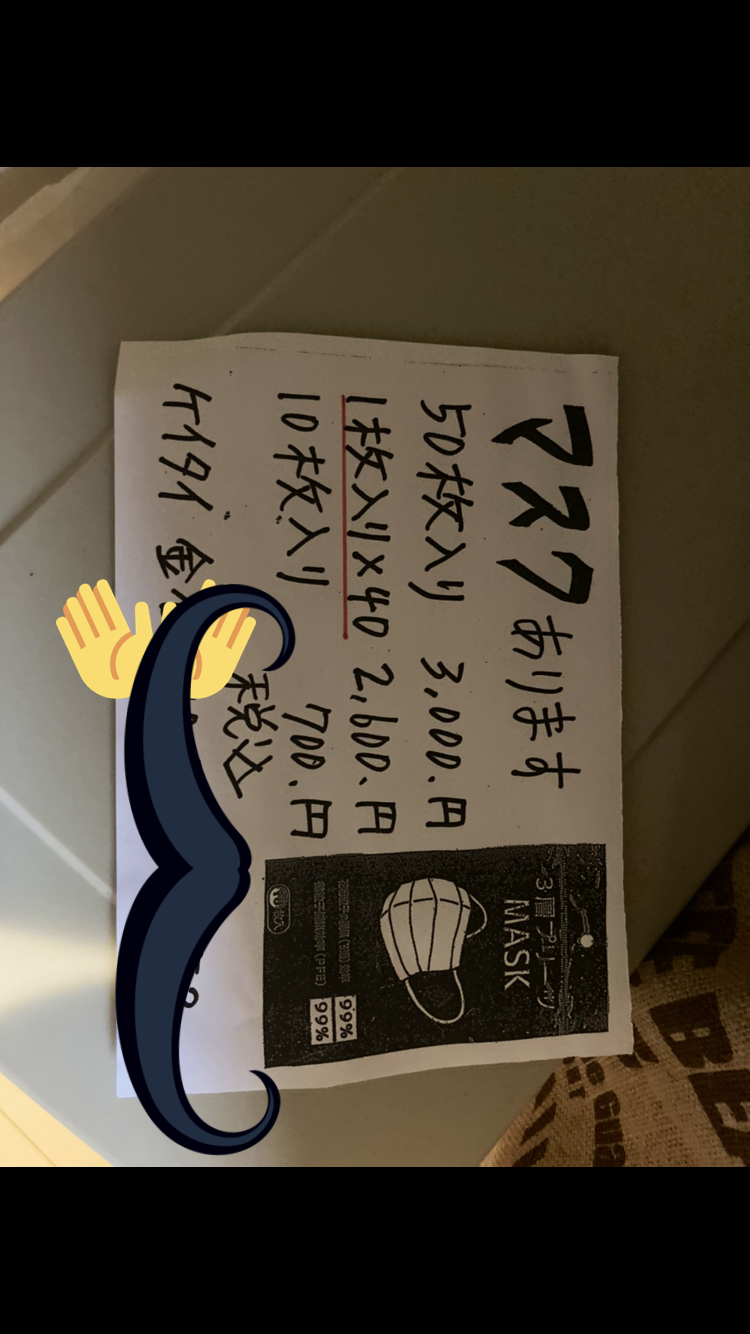 マスクあります
50枚入り 3,000.円
1枚入り×40 2,600.円
10枚入り 700.円
税込
ケイタイ 金
3層プリーツ
MASK
99%
99%
10枚入
BE